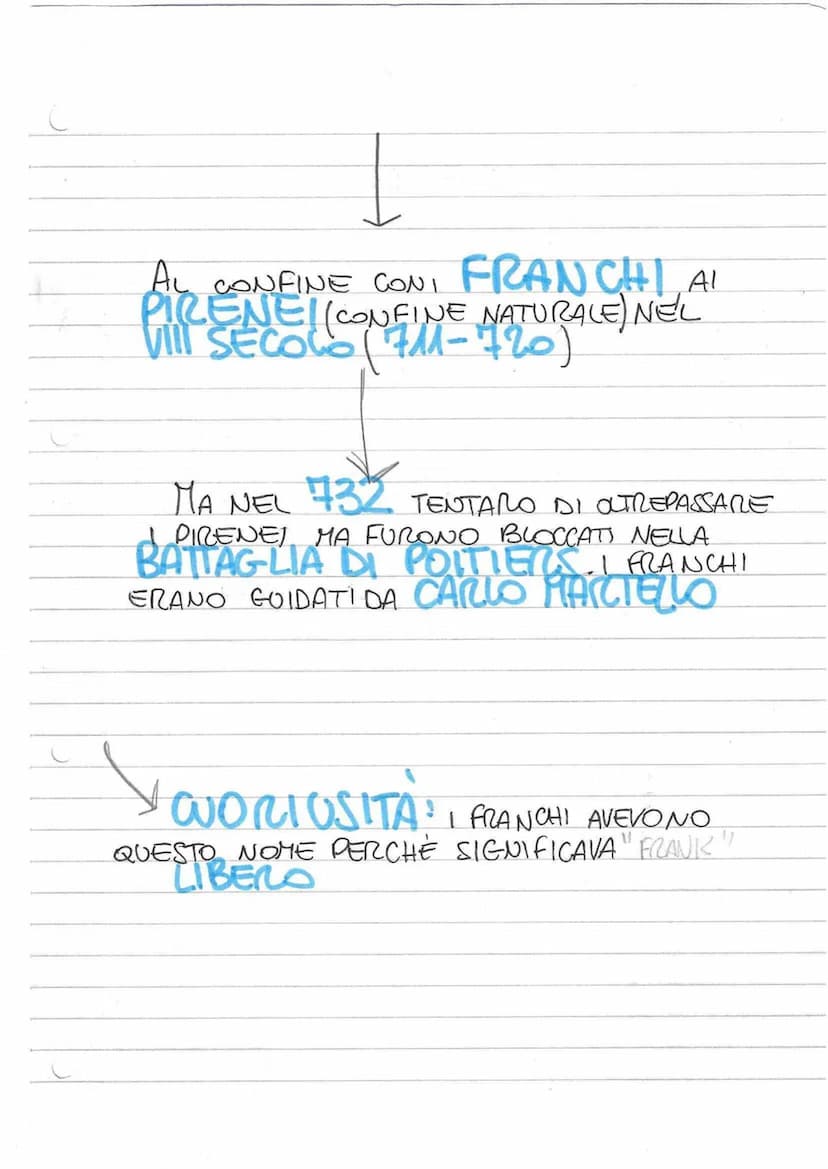 AL CONFINE CON I FRANCHI, AI
PIRENEI (CONFINE NATURALE) NEL
VIII SECOLO (711-720)
MA NEL 732 TENTARO DI OLTREPASSARE
I PIRENEI MA FURONO BLOCCATI NELLA
BATTAGLIA DI POITIERS. I FRANCHI
ERANO GUIDATI DA CARLO MARTELLO
CUORIUSITÀ: I FRANCHI AVEVONO
QUESTO NOME PERCHÈ SIGNIFICAVA "FRANK"
LIBERO